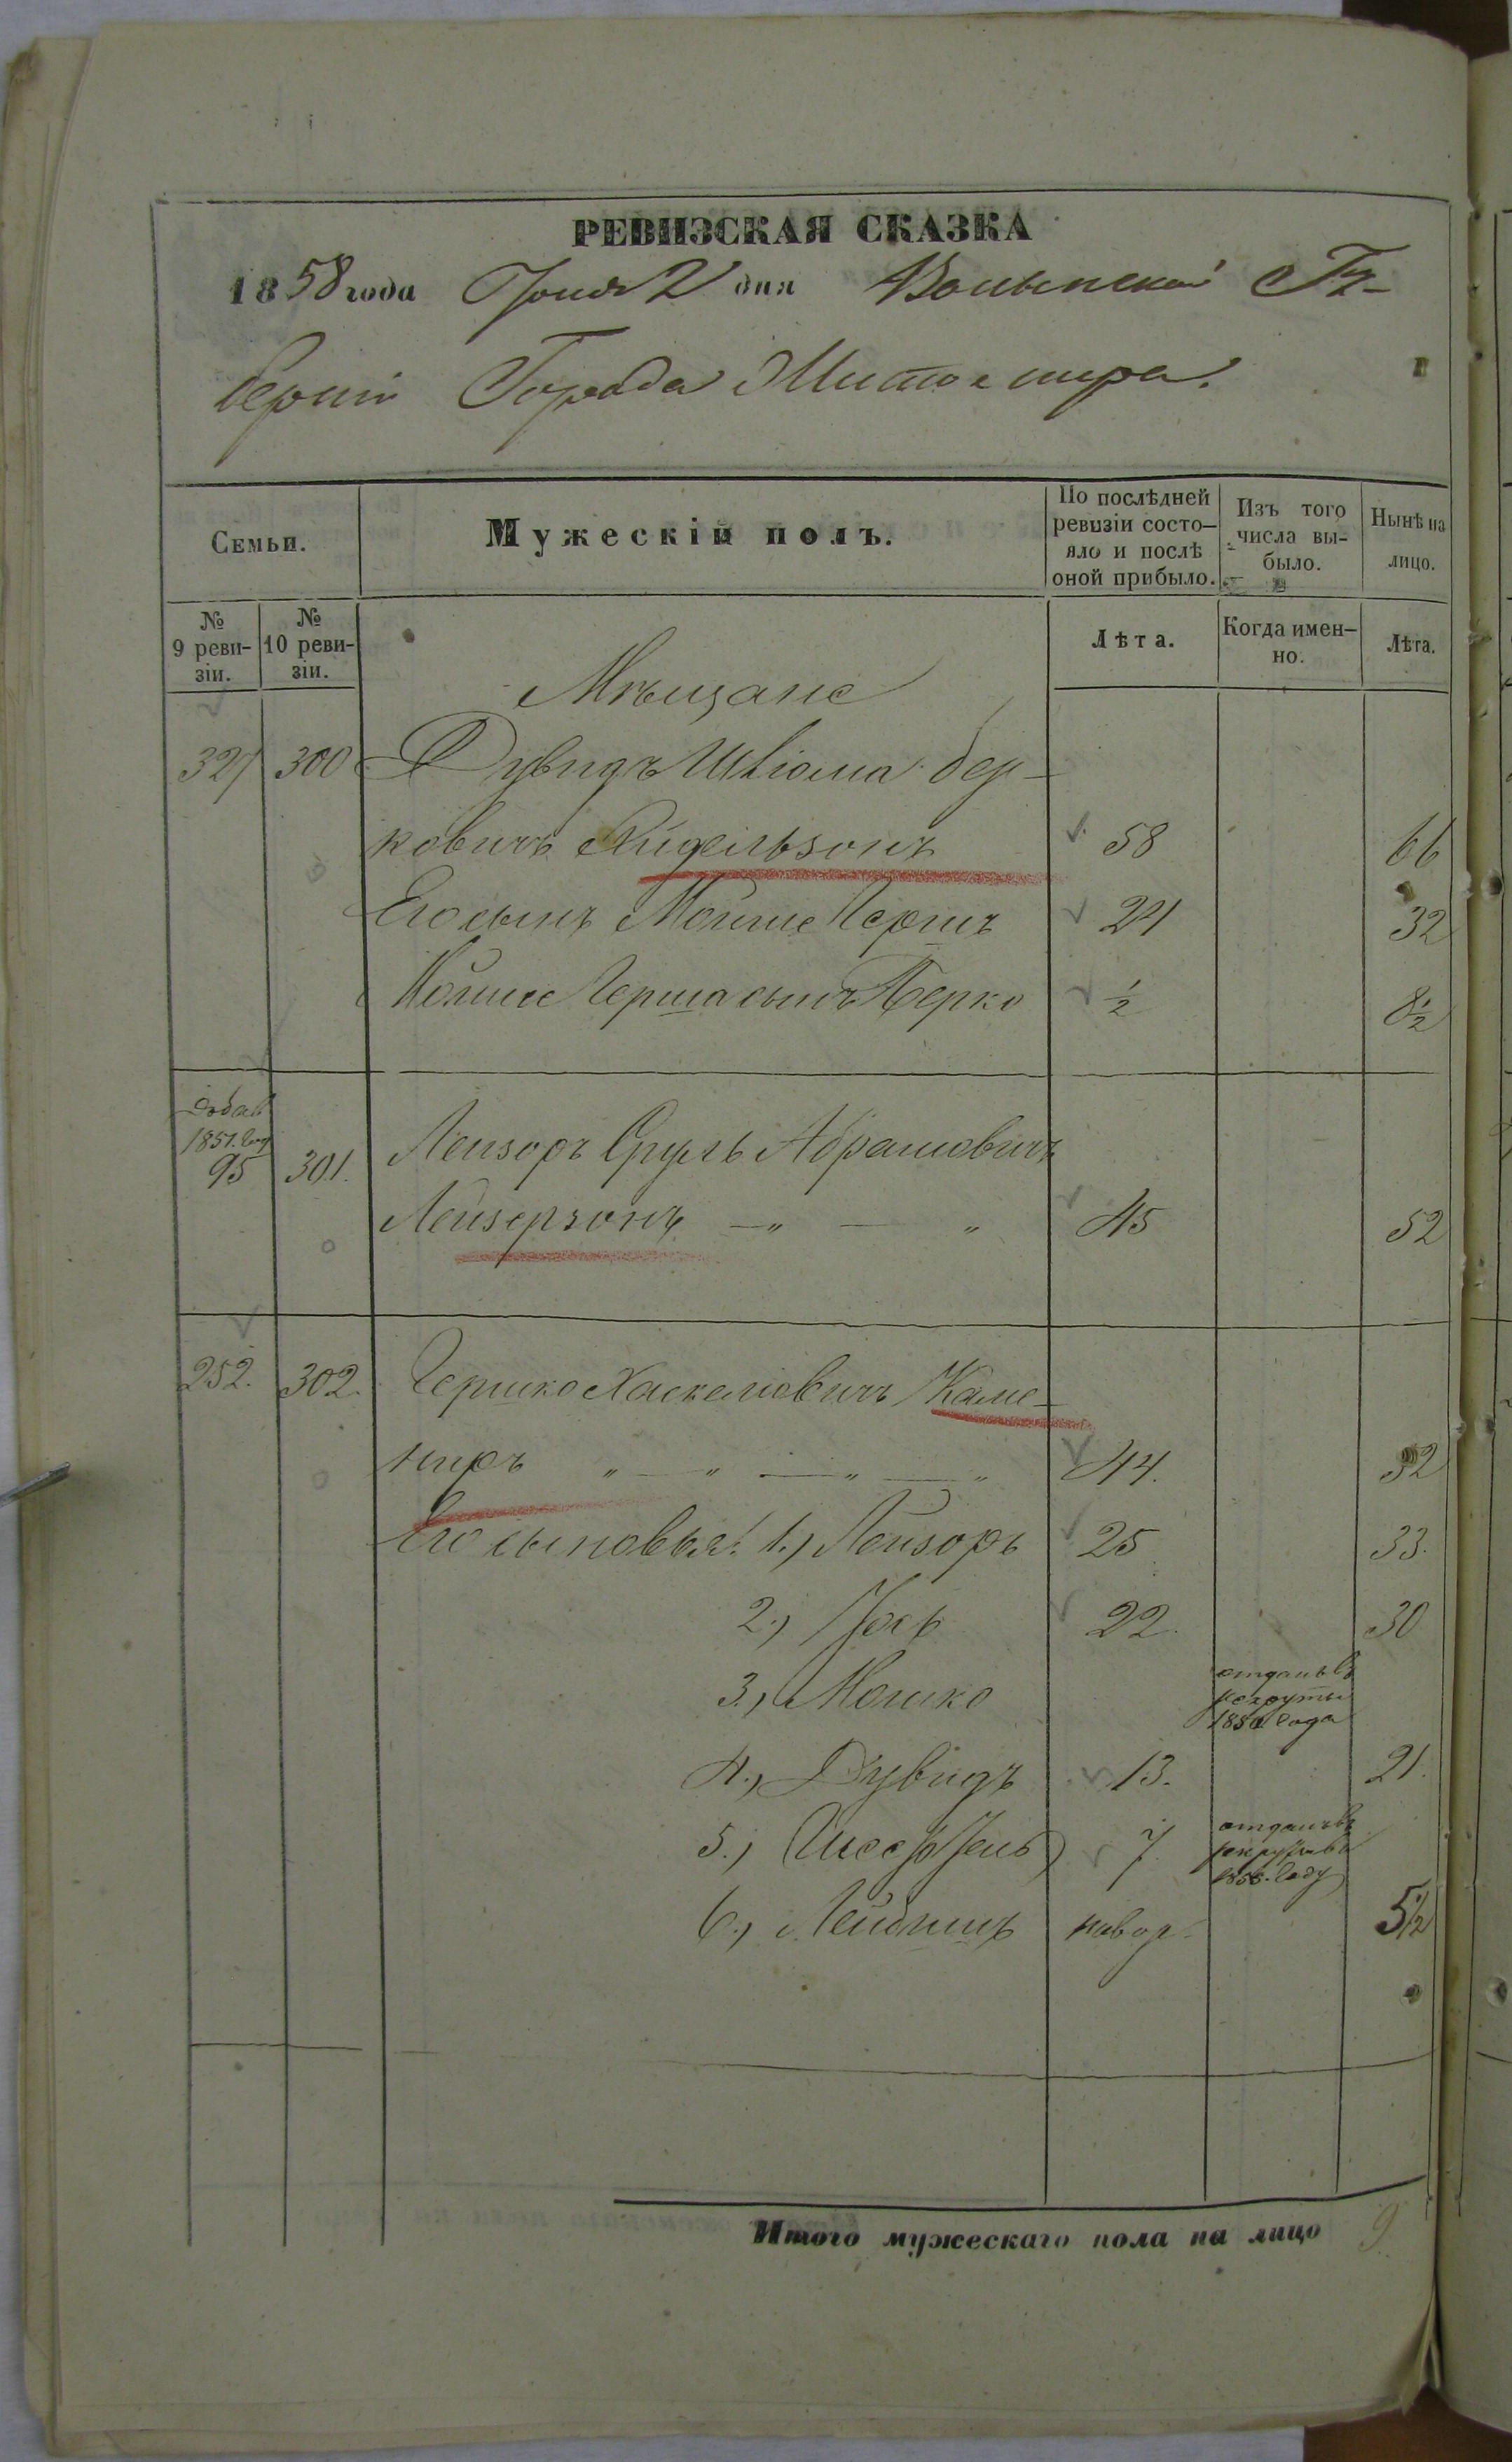 РЕВИЗСКАЯ СКАЗКА
1858 года Іюня 2 дня Волынской Гу-
берніи Города Житомира.
Семьи.
Мужескій полъ.
По послѣдней ревизіи состо-яло и послѣ оной прибыло.
Изъ того числа вы-было.
Нынѣ на лицо.
№ 9 реви-зіи.
№ 10 реви-зіи.
Лѣта.
Когда имен-но.
Лѣта.
Мѣщане
327 300 Дувидъ Шліома Бер-
ковичъ 58 66
Его сынъ Мойше Гершъ 24 32
Мойше Герша сынъ Берко ½ 8½
Добав
1851. год
95 301. Лейзоръ Сруль Абрамовичъ
Лейзерзонъ —„ — „ 45 52
252. 302. Гершко Хаскелювичъ Каме-
ниръ „ — „ — „ — „ 44. 52
Его сыновья: 1.) Лейзоръ 25 33.
2.) Іось 22. 30
3.) Мошко отданъ въ
рекруты
1850 года
4.) Дувидъ 13. 21.
5.) 7 отданъ въ
рекруты въ
1855. году
6.) Лейбишъ новор. 5½
Итого мужескаго пола на лицо 9